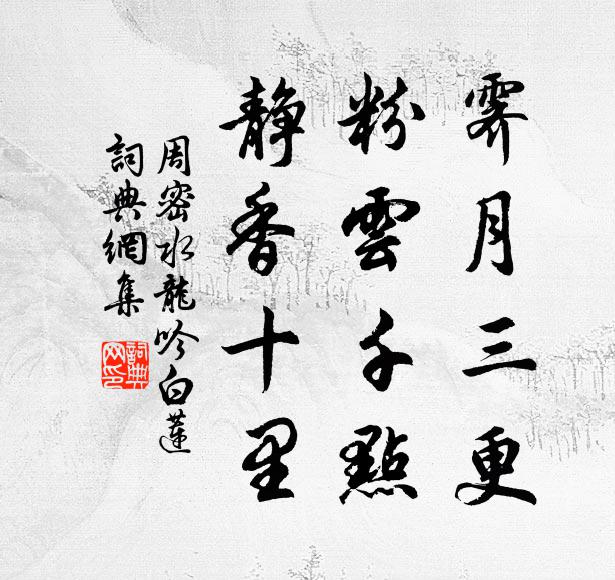 霽月三更
粉雲千點
靜香十里
周密水龍吟白蓮
詞典網集
詞典網印